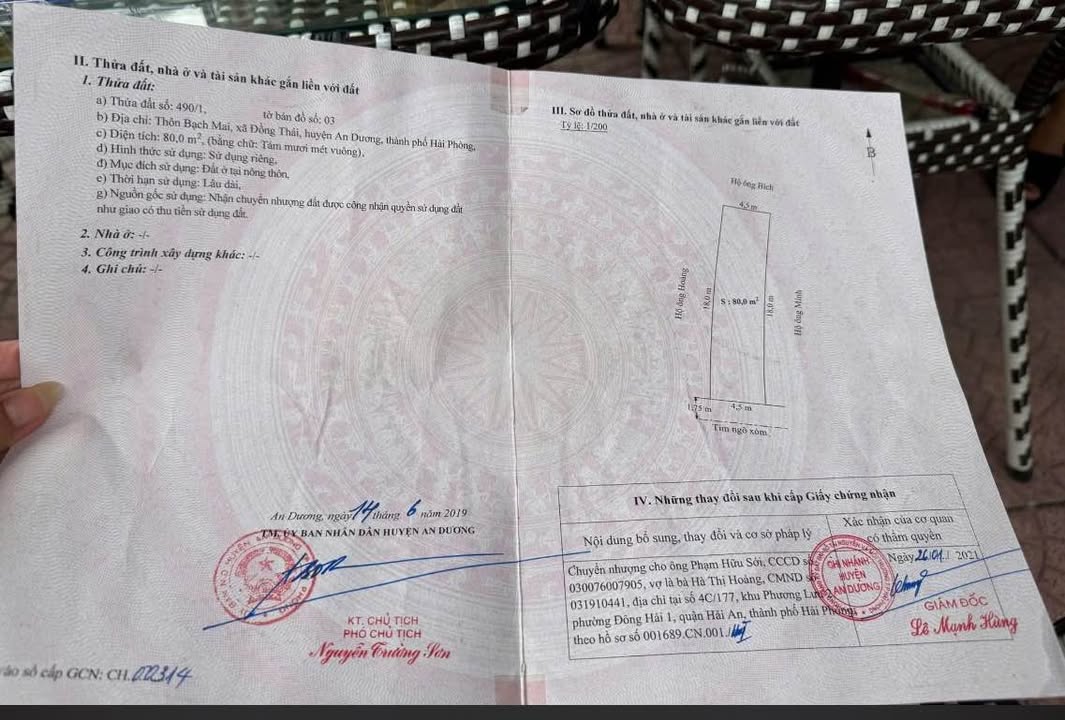 II. Thửa đất, nhà ở và tài sản khác gắn liền với đất
1. Thửa đất:
a) Thửa đất số: 490/1, tờ bản đồ số: 03
b) Địa chỉ: Thôn Bạch Mai, xã Đồng Thái, huyện An Dương, thành phố Hải Phòng,
c) Diện tích: 80,0 m², (bằng chữ: Tám mươi mét vuông),
d) Hình thức sử dụng: Sử dụng riêng,
đ) Mục đích sử dụng: Đất ở tại nông thôn,
e) Thời hạn sử dụng: Lâu dài,
g) Nguồn gốc sử dụng: Nhận chuyển nhượng đất được công nhận quyền sử dụng đất
như giao có thu tiền sử dụng đất.
2. Nhà ở: -/-
3. Công trình xây dựng khác: -/-
4. Ghi chú: -/-
An Dương, ngày 14 tháng 6 năm 2019
TM. ỦY BAN NHÂN DÂN HUYỆN AN DƯƠNG
KT. CHỦ TỊCH
PHÓ CHỦ TỊCH
Nguyễn Trường Sơn
vào sổ cấp GCN: CH.00314
III. Sơ đồ thửa đất, nhà ở và tài sản khác gắn liền với đất
Tỷ lệ: 1/200
B
Hộ ông Bích
4,5 m
Hộ ông Hoàng
18,0 m
S : 80,0 m²
18,0 m
Hộ ông Minh
1,75 m
4,5 m
Tim ngõ xóm
IV. Những thay đổi sau khi cấp Giấy chứng nhận
Nội dung bổ sung, thay đổi và cơ sở pháp lý
Xác nhận của cơ quan
có thẩm quyền
Chuyển nhượng cho ông Phạm Hữu Sời, CCCD số
030076007905, vợ là bà Hà Thị Hoàng, CMND số
031910441, địa chỉ tại số 4C/177, khu Phương Lưu 2
phường Đông Hải 1, quận Hải An, thành phố Hải Phòng,
theo hồ sơ số 001689.CN.001./.
Ngày 26/01/2021
CHI NHÁNH
HUYỆN
AN DƯƠNG
GIÁM ĐỐC
Lê Mạnh Hùng